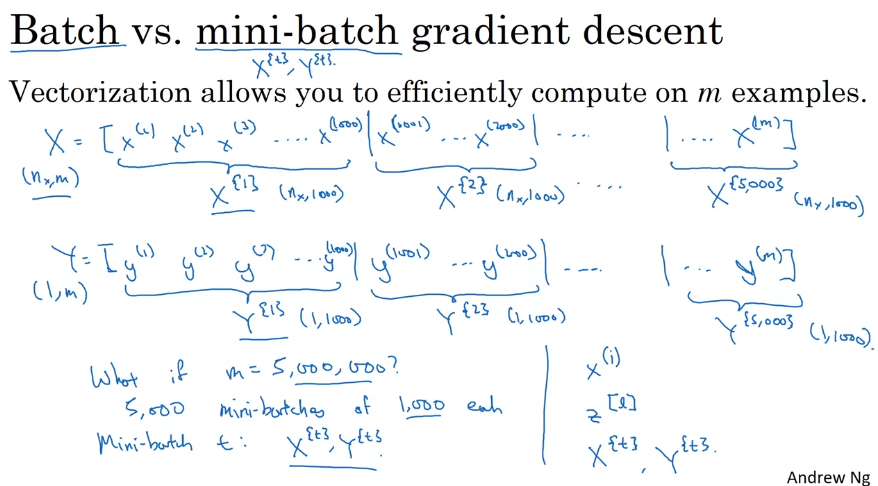 Batch vs. mini-batch gradient descent
X^{t}, Y^{t}.
Vectorization allows you to efficiently compute on m examples.
X = [x^(1) x^(2) x^(3) .... x^(1000) | x^(1001) ... x^(2000) | ... | .... x^(m)]
(n_x, m) X^{1} (n_x, 1000) X^{2} (n_x, 1000) .... X^{5,000} (n_x, 1000)
Y = [y^(1) y^(2) y^(3) ... y^(1000) | y^(1001) ... y^(2000) | .... | ... y^(m)]
(1, m) Y^{1} (1, 1000) Y^{2} (1, 1000) Y^{5,000} (1, 1000).
What if m = 5,000,000?
5,000 mini-batches of 1,000 each
Mini-batch t: X^{t}, Y^{t}.
x^(i)
z^[l]
X^{t}, Y^{t}.
Andrew Ng